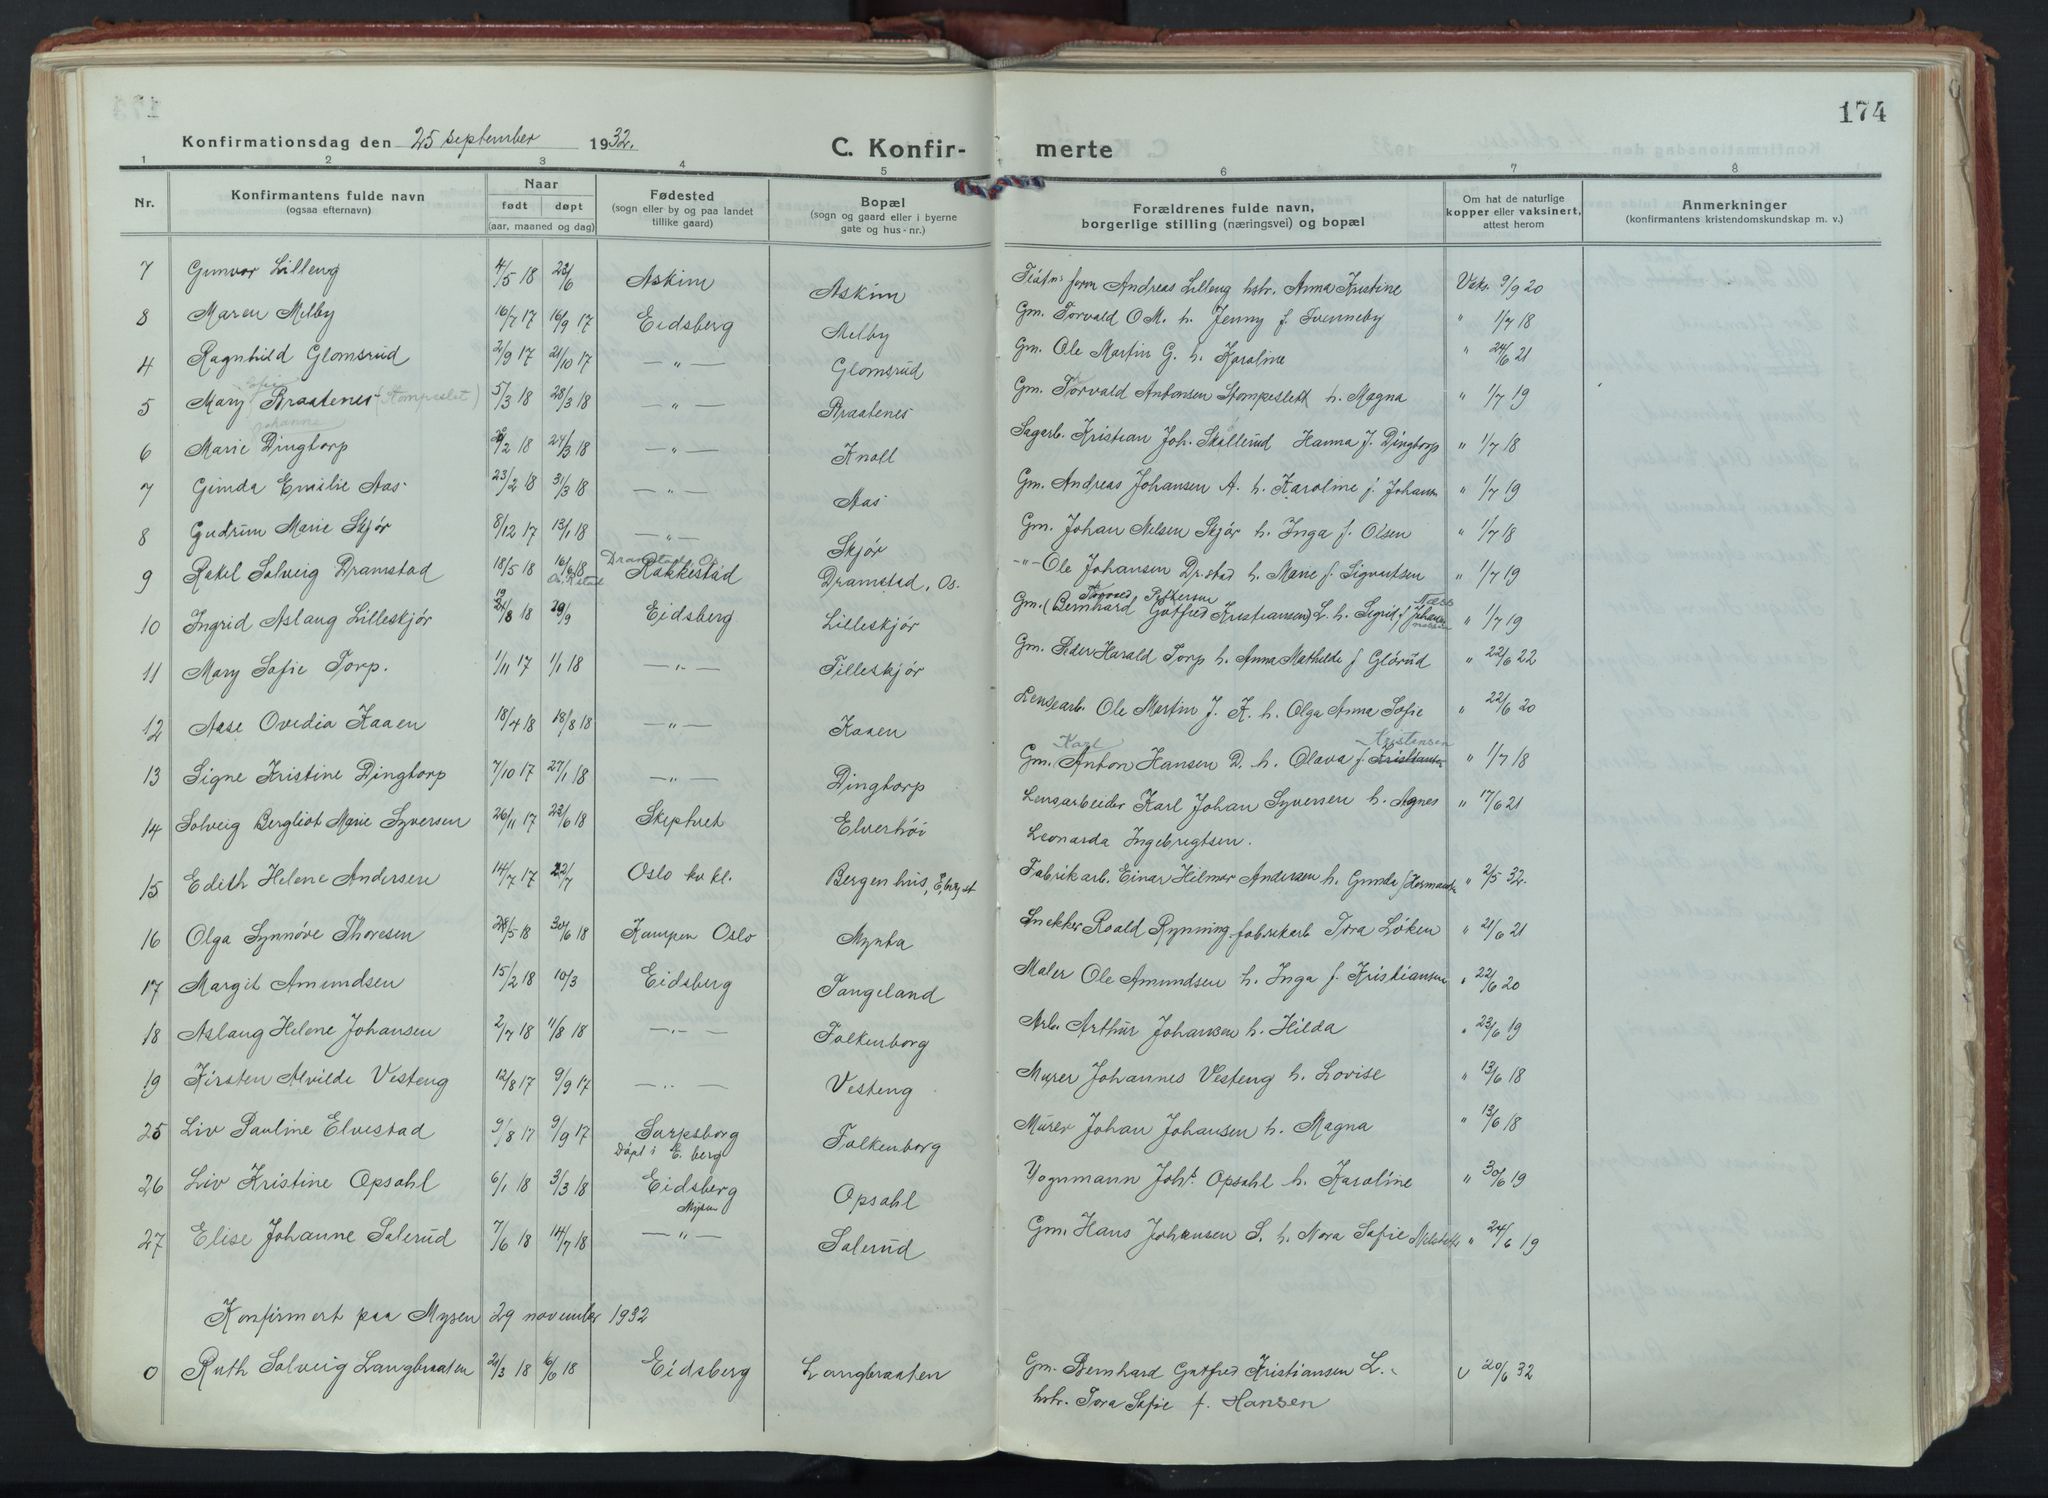 174
Konfirmationsdag den 25 september 1932.
C. Konfir- merte
1 2 3 4 5 6 7 8
Nr.
Konfirmantens fulde navn
(ogsaa efternavn)
Naar
født døpt
(aar, maaned og dag)
Fødested
(sogn eller by og paa landet
tillike gaard)
Bopæl
(sogn og gaard eller i byerne
gate og hus-nr.)
Forældrenes fulde navn,
borgerlige stilling (næringsvei) og bopæl
Om hat de naturlige
kopper eller vaksinert,
attest herom
Anmerkninger
(konfirmantens kristendomskundskap m. v.)
7 Gunvor Lilleng 4/5 18 23/6 Askim Askim Andreas Lilleng hstr. Anna Kristine Vaks. 9/9 20
8 Maren Melby 16/7 17 16/9 17 Eidsberg Melby Gm. Torvald O M. h. Jenny f. Svenneby " 1/7 18
4 Ragnhild Glomsrud 2/9 17 21/10 17 — " — Glomsrud Gm. Ole Martin G. h. Karoline " 24/6 21
5 Mary Sofie Braatenes (Stompeslet) 5/3 18 28/3 18 — " — Braatenes Gm. Torvald Antonsen Stompeslett h. Magna " 1/7 19
Johanne
6 Marie Dingtorp 2/2 18 24/3 18 — " — Knoll Sagarb. Kristian Joh. Skallerud Hanna J. Dingtorp " 1/7 18
7 Gunda Emilie Aas 23/2 18 31/3 18 — " — Aas Gm. Andreas Johansen A. h. Karoline f. Johans " 1/7 19
8 Gudrun Marie Skjør 8/12 17 13/1 18 — " — Skjør Gm. Johan Nilsen Skjør h. Inga f. Olsen " 1/7 18
Dramstad Os
9 Rakel Solveig Dramstad 18/5 18 16/6 18 Rakkestad Dramstad, Os. - " - Ole Johansen Dr.stad h. Marie f. Sigvartsen " 1/7 19
Torvald Pettersen Næss
10 Ingrid Aslaug Lilleskjør /8 18 29/9 Eidsberg Lilleskjør Gm. (Bernhard Gotfred Kristiansen) L. h. Sigrid f. Johansen " 1/7 19
11 Mary Sofie Torp. 1/11 17 1/1 18 — " — Lilleskjør Gm. Peder Harald Torp h. Anna Mathilde f Glørud " 22/6 22
12 Aase Ovedia Kaaen 18/4 18 18/8 18 — " — Kaaen Lensearb. Ole Martin J. K. h. Olga Anna Sofie " 22/6 20
Karl Kristensen
13 Signe Kristine Dingtorp 7/10 17 27/1 18 — " — Dingtorp Gm. Anton Hansen D. h. Olava f. Kristiansen " 1/7 18
14 Solveig Bergliot Marie Syversen 26/11 17 23/6 18 Skiptvet Elverhöi Lensarbeider Karl Johan Syversen h. Agnes " 17/6 21
Leonarda Ingebrigtsen.
15 Edith Helene Andersen 14/7 17 22/7 Oslo kv kl. Bergenhus, E,berg st Fabrikarb. Einar Hilmar Andersen h. Gunda f Hermansen " 2/5 32.
16 Olga Synnöve Thoresen 28/5 18 30/6 18 Kampen Oslo Mynta Snekker Roald Rynning fabrikarb Tora Løken " 21/6 21
17 Margit Amundsen 15/2 18 10/3 Eidsberg Tangeland Maler Ole Amundsen h. Inga f. Kristiansen " 22/6 20
18 Aslaug Helene Johansen 2/7 18 11/8 18 — " — Falkenborg Arb. Arthur Johansen h. Hilda " 23/6 19
19 Kirsten Alvilde Vesteng 12/8 17 9/9 17 — " — Vesteng Murer Johannes Vesteng h. Lovise " 13/6 18
25 Liv Pauline Elvestad 9/8 17 9/9 17 Sarpsborg Falkenborg Murer Johan Johansen h. Magna " 13/6 18
Døpt i E. berg
26 Liv Kristine Opsahl 6/1 18 3/3 18 Eidsberg Opsahl Vognmann Joh. Opsahl h. Karoline " 30/6 19
Mysen
27 Elise Johanne Salerud 7/6 18 14/7 18 — " — Salerud Gm. Hans Johansen S. h. Nora Sofie " 24/6 19
Konfirmert paa Mysen 29 november 1932
0 Ruth Solveig Langbraaten 21/3 18 16/6 18 Eidsberg Langbraaten Gm. Bernhard Gotfred Kristiansen L. v 20/6 32
hstr. Tora Sofie f. Hansen